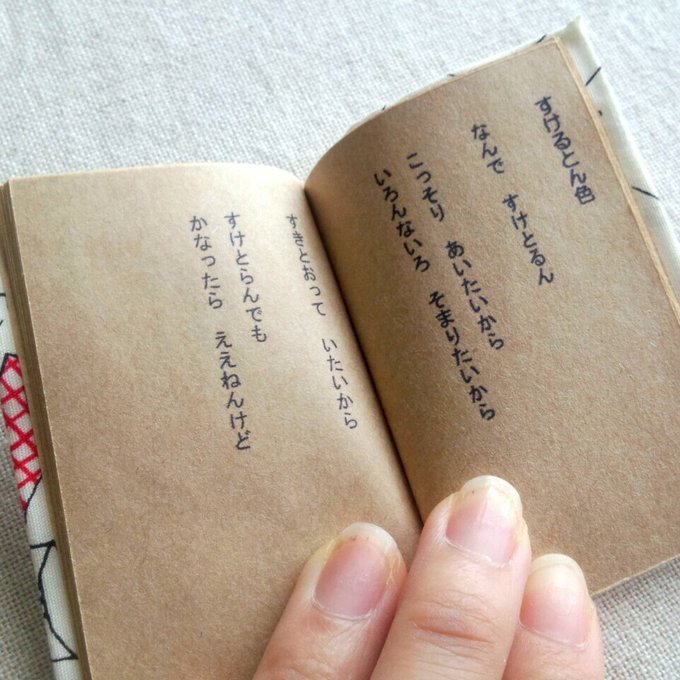 すけるとん色
なんで　すけとるん
こっそり　あいたいから
いろんないろ　そまりたいから
すきとおって　いたいから
すけとらんでも
かなったら　ええねんけど